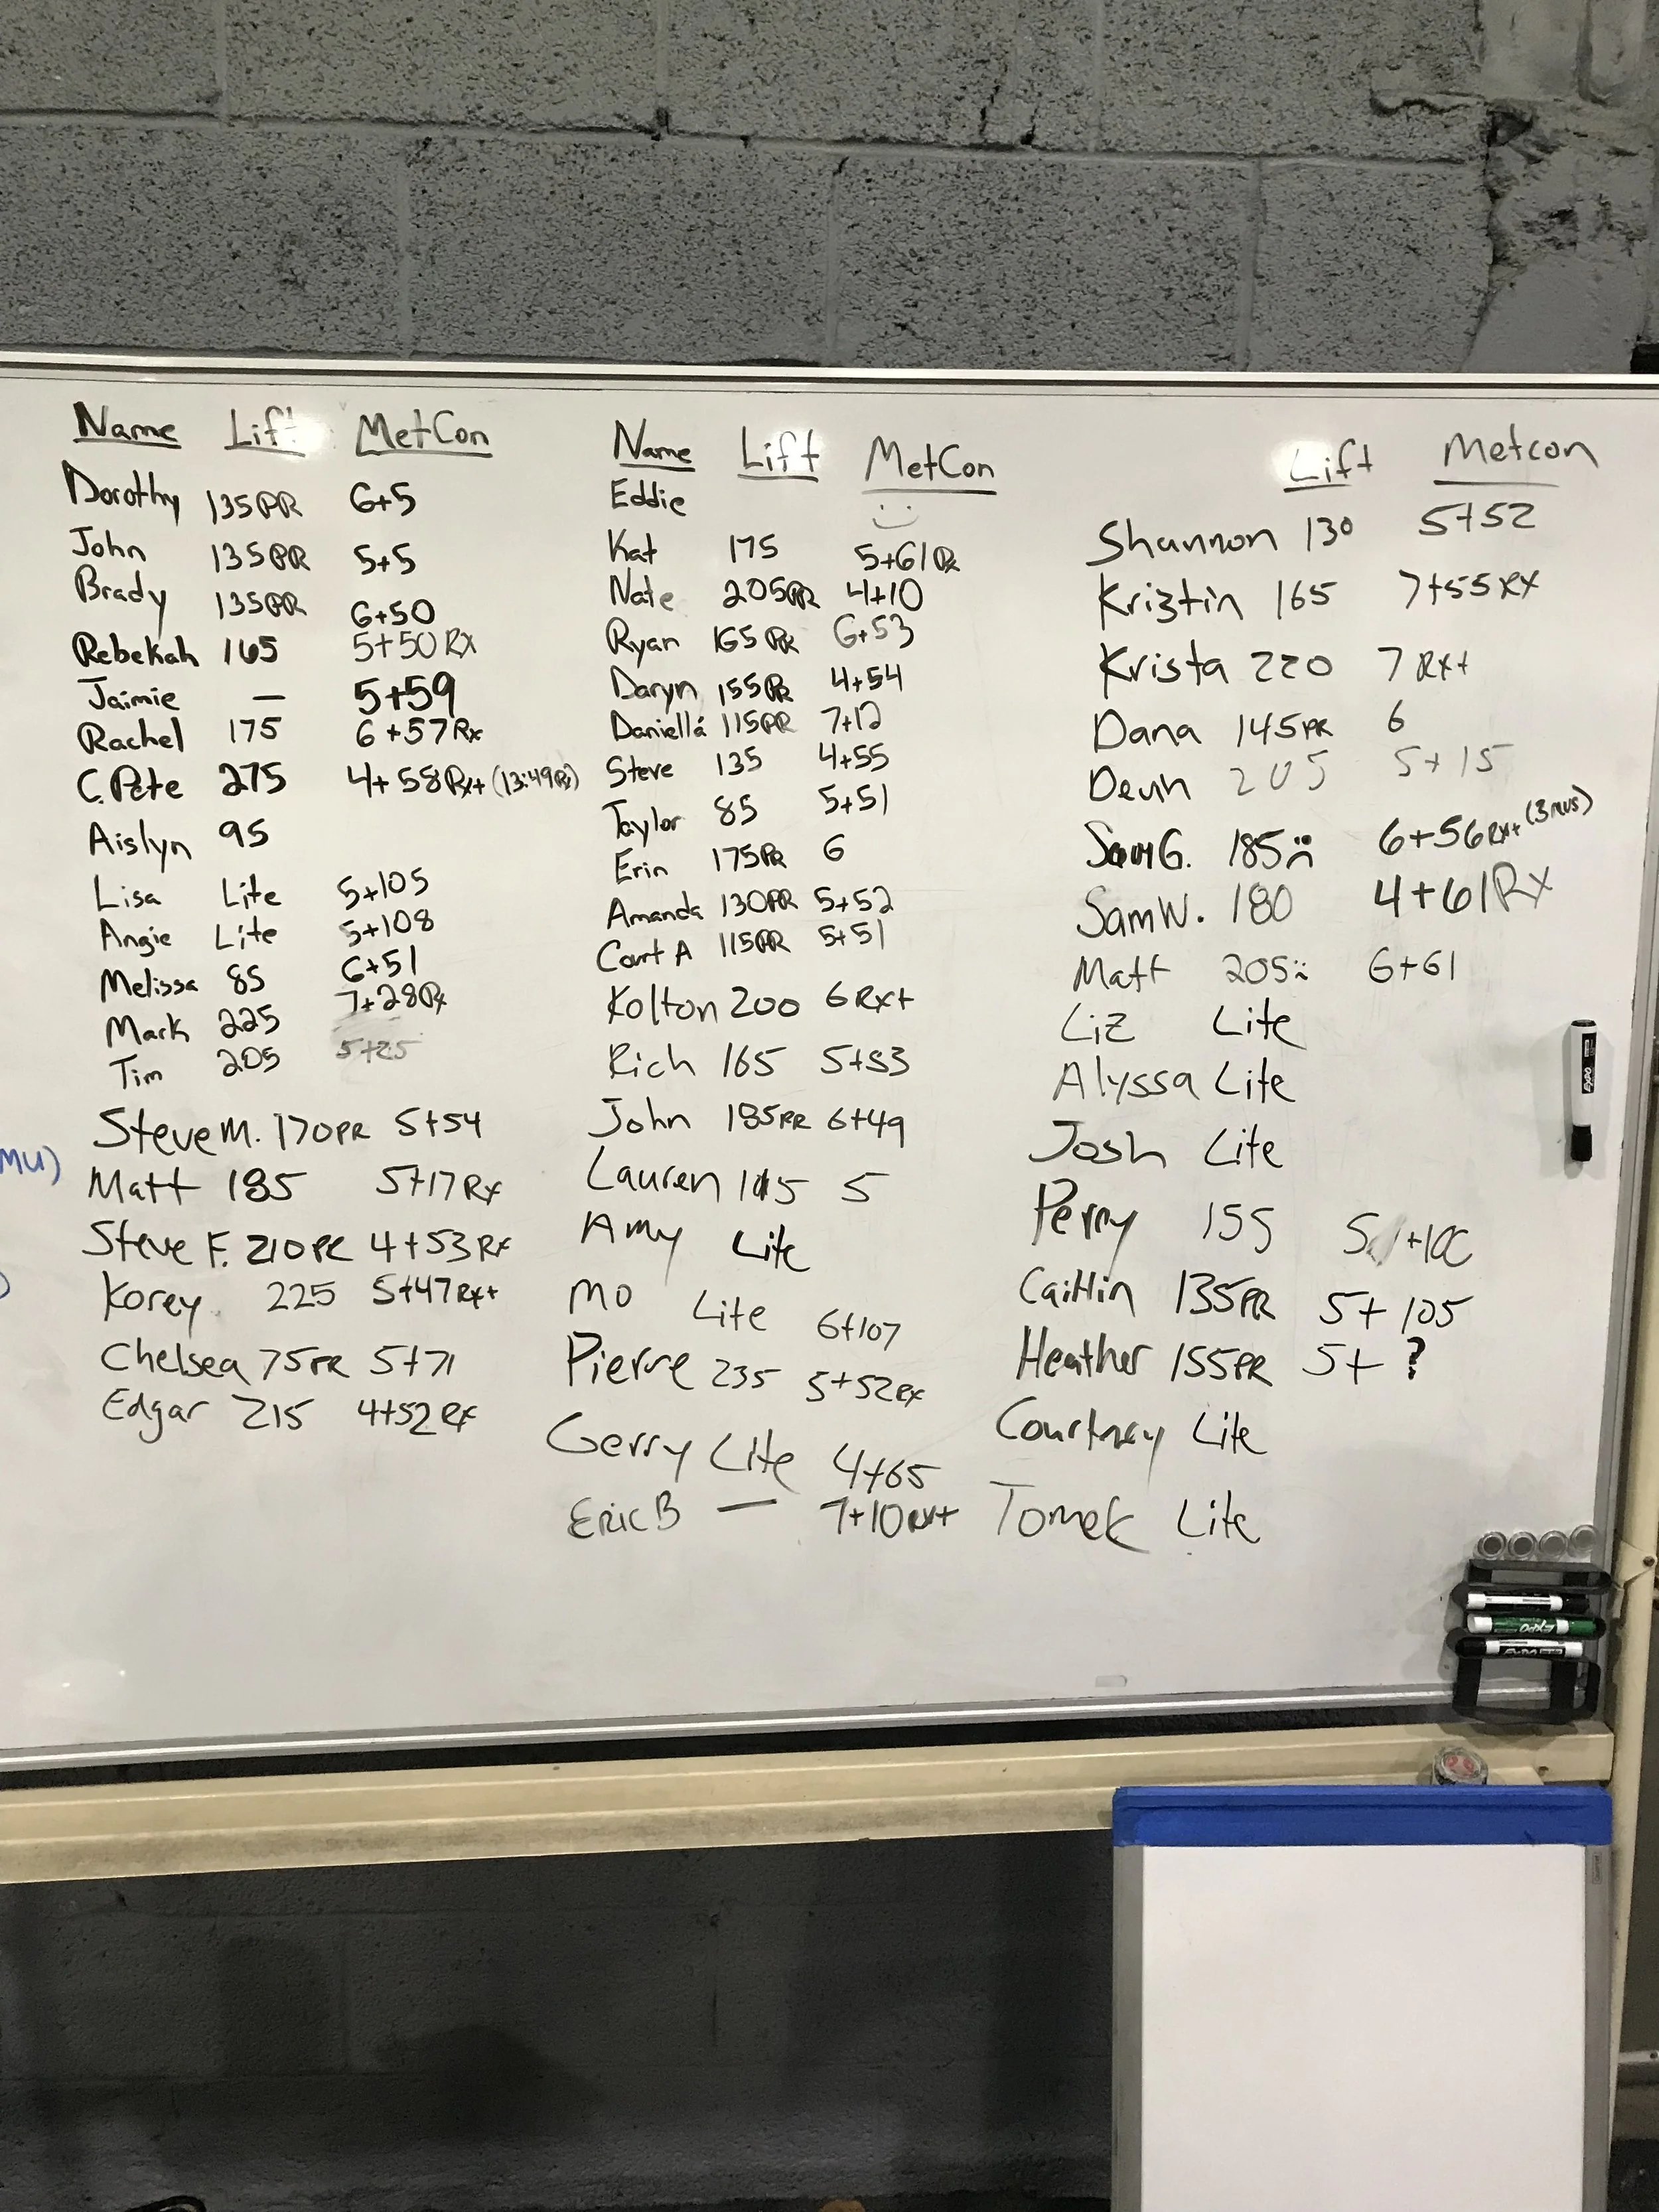 Name Lift MetCon
Dorothy 135PR 6+5
John 135PR 5+5
Brady 135PR 6+50
Rebekah 165 5+50 Rx
Jaimie — 5+59
Rachel 175 6+57Rx
C. Pete 275 4+58Rx+ (13:49Rx)
Aislyn 95
Lisa Lite 5+105
Angie Lite 5+108
Melissa 85 6+51
Mark 225 7+28Rx
Tim 205 5+25
Steve M. 170PR 5+54
MU)
Matt 185 5+17Rx
Steve F. 210PR 4+53Rx
Korey 225 5+47Rx+
Chelsea 75PR 5+71
Edgar 215 4+52Rx
Name Lift MetCon
Eddie
Kat 175 5+61Rx
Nate 205PR 4+10
Ryan 165PR 6+53
Daryn 155PR 4+54
Daniella 115PR 7+12
Steve 135 4+55
Taylor 85 5+51
Erin 175PR 6
Amanda 130PR 5+52
Court A 115PR 5+51
Kolton 200 6Rx+
Rich 165 5+53
John 185PR 6+49
Lauren 5
Amy Lite
Mo Lite 6+107
Pierre 235 5+52Rx
Gerry Lite 4+65
Eric B — 7+10Rx+
Lift Metcon
Shannon 130 5+52
Kristin 165 7+55Rx
Krista 220 7Rx+
Dana 145PR 6
Devin 205 5+15
Sam G. 185 6+56Rx+ (3mus)
Sam W. 180 4+61Rx
Matt 205 6+61
Liz Lite
Alyssa Lite
Josh Lite
Perry 155
Caitlin 135PR 5+105
Heather 155PR 5+?
Courtney Lite
Tomek Lite
EXPO
EXPO
EXPO